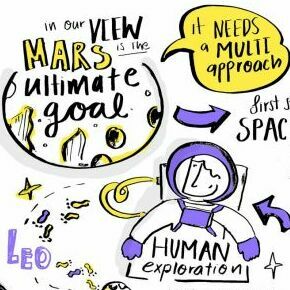 in our VIEW
MARS is the
ultimate
goal
it NEEDS
a MULTI
approach
first s
SPAC
LEO
HUMAN
exploration